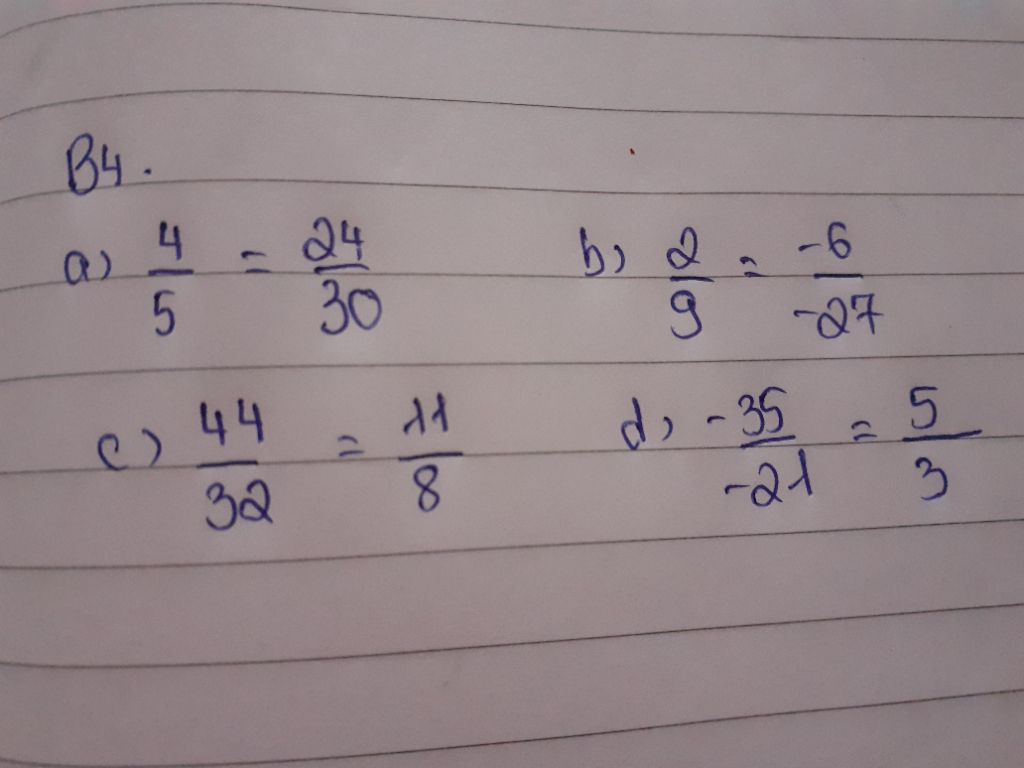 B4.
a) 4/5 = 24/30 b) 2/9 = -6/-27
c) 44/32 = 11/8 d) -35/-21 = 5/3